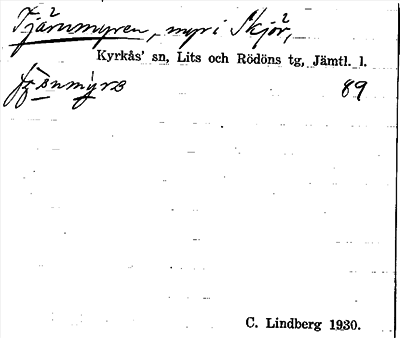 Tjärnmyren, myr i Skjör,
Kyrkås' sn, Lits och Rödöns tg, Jämtl. l.
89
C. Lindberg 1930.